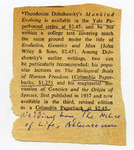 "Theodosius Dobzhansky's Mankind
Evolving is available in the Yale Pa-
perbound series at $2.45, and he has
written a college text covering much
the same ground under the title of
Evolution, Genetics and Man (John
Wiley & Sons, $2.45). Among Dob-
zhansky's earlier writings, two can
be particularly recommended: his pop-
ular lectures on The Biological Basis
of Human Freedom (Columbia Paper-
backs, $1.25) and his magisterial
Genetics and the Origin of Species,
first published in 1937 and now
available in the third, revised edition
as a Columbia Paperback at $2.45."
from The
of Life,